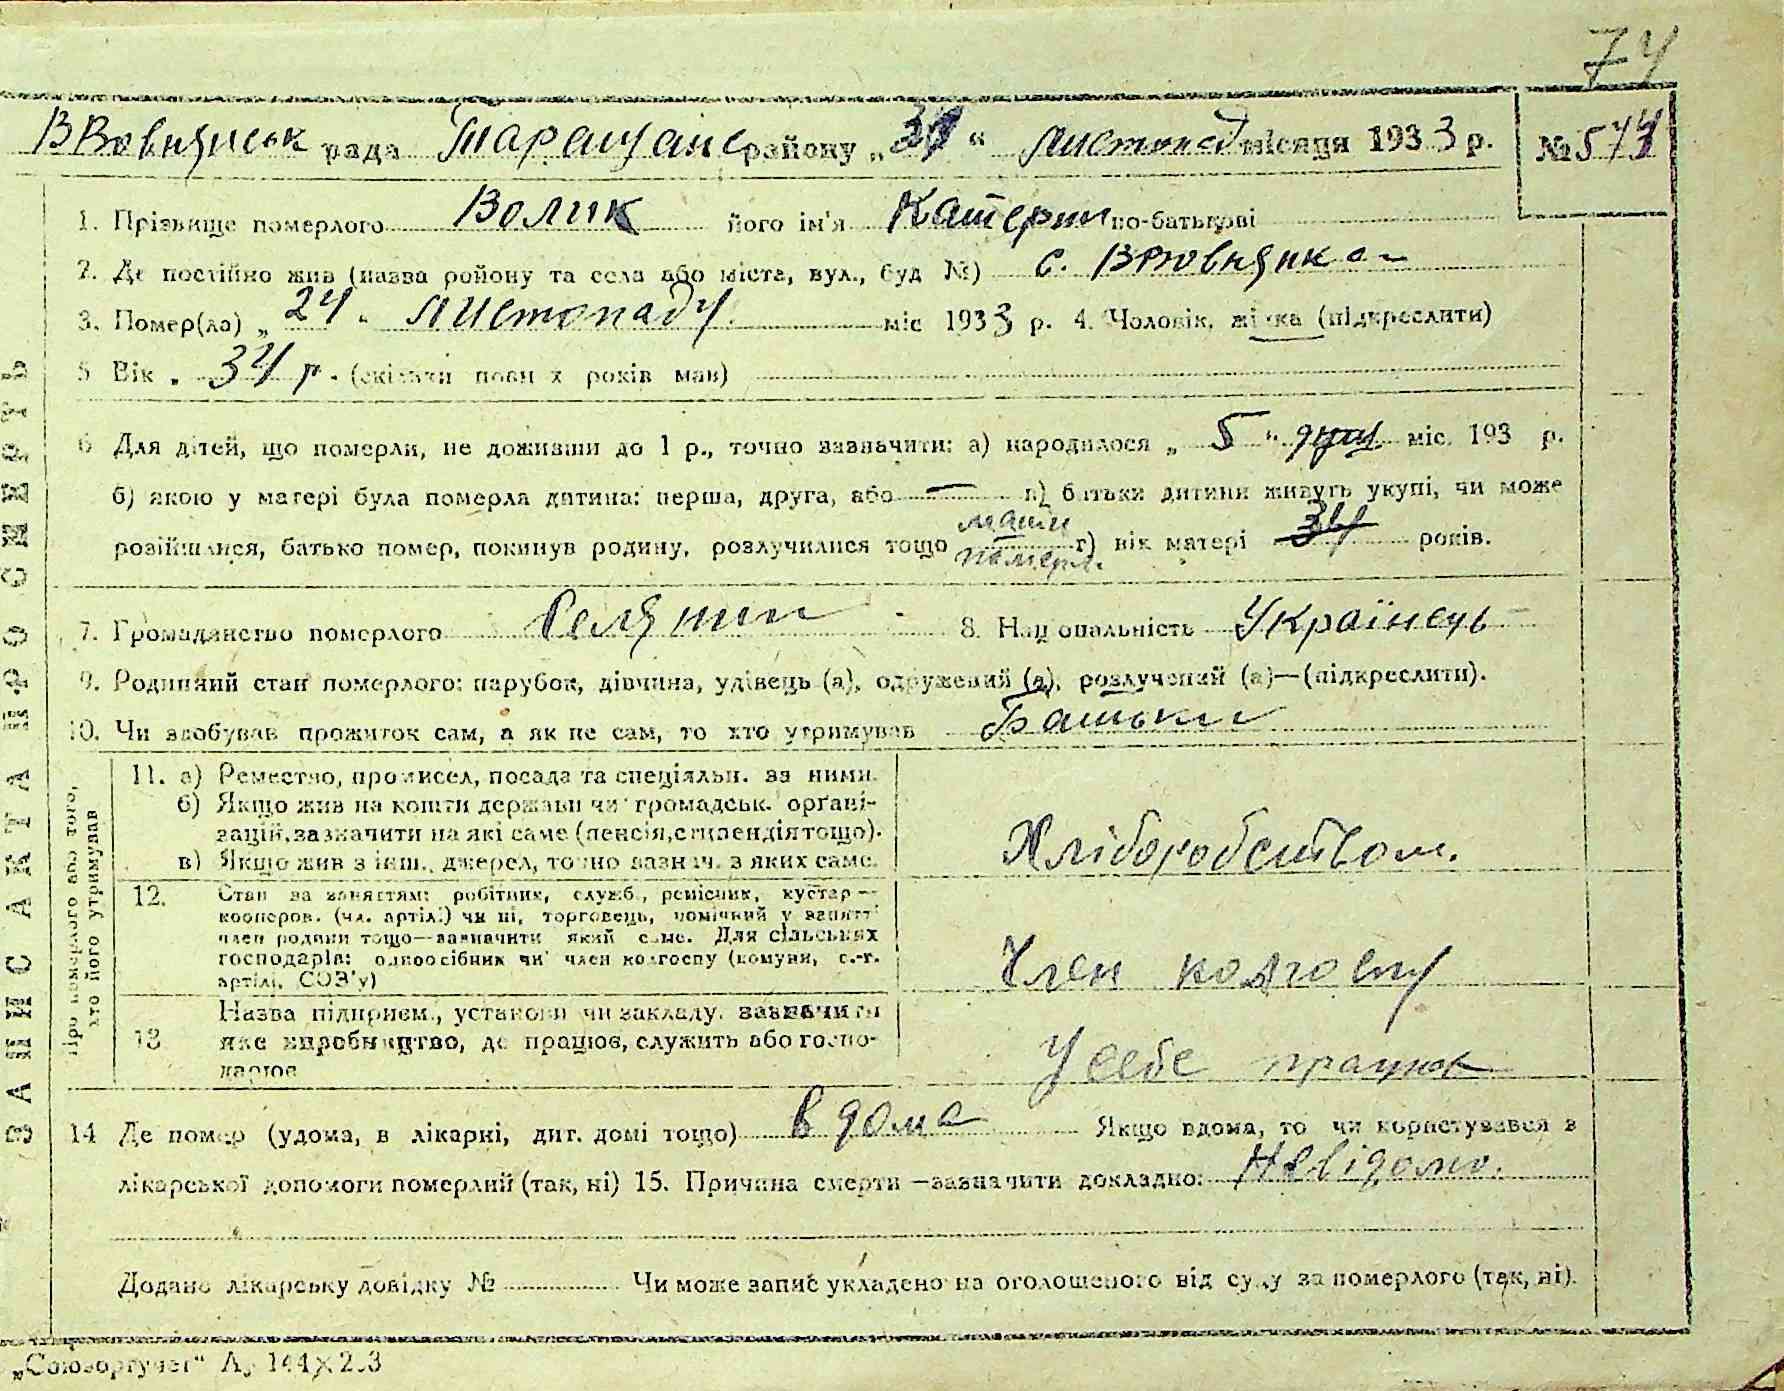 74
ВВовнянськ рада Таращанс району „30“ листопад місяця 1933 р. № 574
1. Прізвище померлого Волик його ім'я Катерин по-батькові
2. Де постійно жив (назва району та села або міста, вул., буд №) с. ВВовнянка
3. Помер(ла) „24“ листопаду міс 1933 р. 4. Чоловік, жінка (підкреслити)
5 Вік „ 34 р. (скільки повних років мав)
6 Для дітей, що померли, не доживши до 1 р., точно зазначити: а) народилося „ 5 “ дни міс. 193 р.
б) якою у матері була померла дитина: перша, друга, або — в) батьки дитини живуть укупі, чи може
розійшлися, батько помер, покинув родину, розлучилися тощо мати померл. г) вік матері 34 років.
7. Громадянство померлого Селянин 8. Національність Українець
9. Родинний стан померлого: парубок, дівчина, удівець (а), одружений (а), розлучений (а)—(підкреслити).
10. Чи здобував прожиток сам, а як не сам, то хто утримував Батьки
ЗАПИС АКТА ПРО СМЕРТЬ
Про померлого або того, хто його утримував
11. а) Ремество, промисел, посада та спеціяльн. за ними.
б) Якщо жив на кошти держави чи громадськ. орґані-
зацій, зазначити на які саме (пенсія, стипендія тощо).
в) Якщо жив з інш. джерел, точно зазнач. з яких саме.
Хліборобством.
12. Стан за заняттям: робітник, служб., ремісник, кустар—
кооперов. (чл. артілі) чи ні, торговець, помічний у занятті
член родини тощо—зазначити який саме. Для сільських
господарів: одноосібник чи член колгоспу (комуни, с.-г.
артілі, СОЗ'у)
Член колгоспу
13 Назва підприєм., установи чи закладу, зазначити
яке виробництво, де працює, служить або госпо-
дарює
У себе працює
14 Де помер (удома, в лікарні, дит. домі тощо) в дома Якщо вдома, то чи користувався в
лікарської допомоги померлий (так, ні) 15. Причина смерти —зазначити докладно: Невідомо.
Додано лікарську довідку № Чи може запис укладено на оголошеного від суду за померлого (так, ні).
„Союзоргучет“ А5 144×203